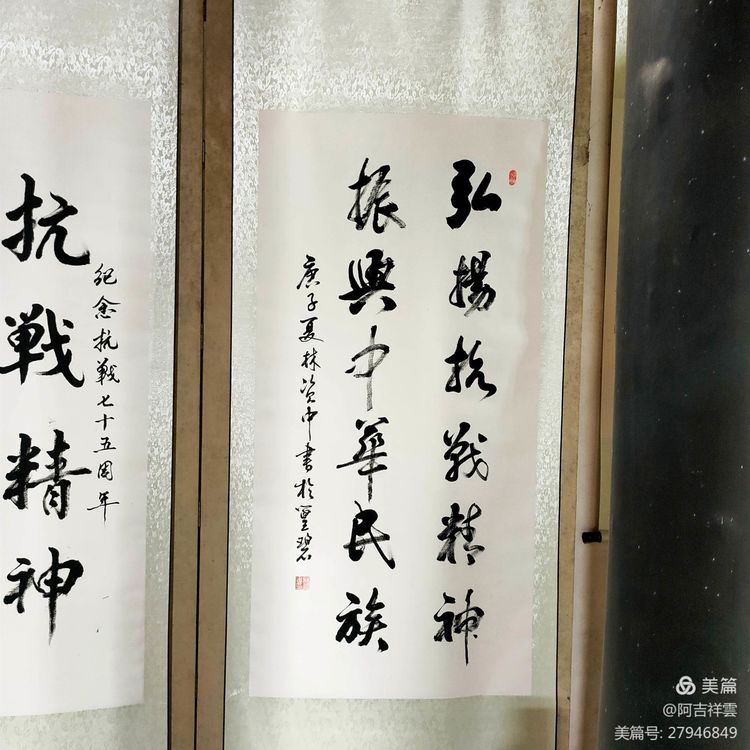 弘揚抗战精神
振興中華民族
庚子夏林资中書於
抗戰精神
紀念抗戰七十五周年
美篇
@阿吉祥雲
美篇号: 27946849